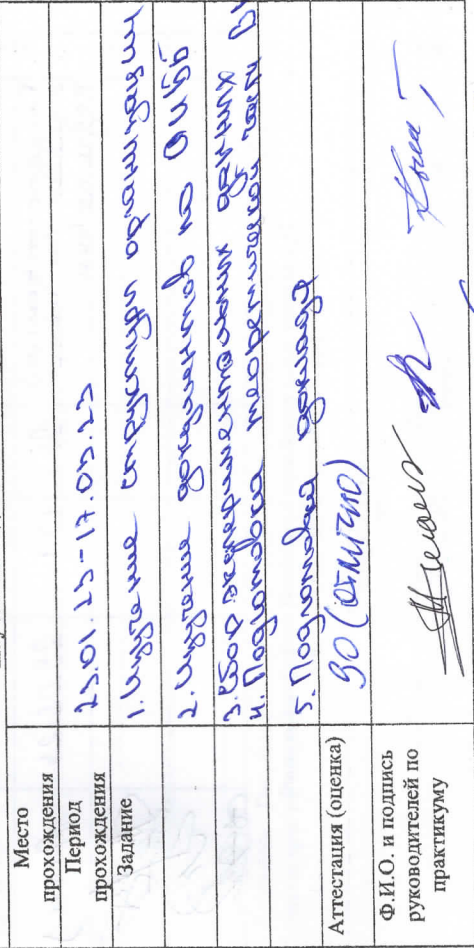 Место
прохождения
Период
прохождения
23.01.23-17.05.23
Задание
1. Изучение структуры организации
2. Изучение документов по ОИБб
3. Сбор экспериментальных данных
4. Подготовка теоретической части
5. Подготовка доклада
Аттестация (оценка)
90 (отлично)
Ф.И.О. и подпись
руководителей по
практикуму